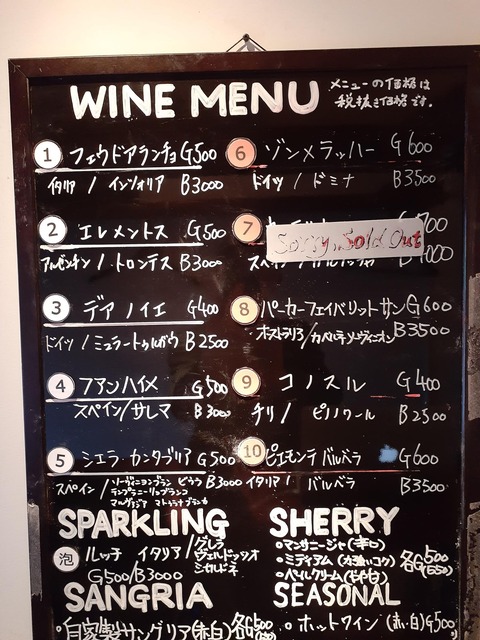 WINE MENU
メニューの価格は
税抜き価格です。
1 フェウドアランチョ G500
イタリア / インツォリア B3000
2 エレメントス G500
アルゼンチン / トロンテス B3000
3 デア ノイエ G400
ドイツ / ミュラートゥルガウ B2500
4 ファンハイメ G500
スペイン / サレマ B3000
5 シエラ・カンタブリア G500
スペイン / ソーヴィニヨンブラン ビウラ B3000
テンプラニーリョブランコ
マルヴァジア マトゥラナブランカ
6 ゾンメラッハー G600
ドイツ / ドミナ B3500
7
Sorry, Sold Out
8 パーカーフェイバリットサン G600
オーストラリア / カベルネソーヴィニオン B3500
9 コノスル G400
チリ / ピノノワール B2500
10 ピエモンテ バルベラ G600
イタリア / バルベラ B3500
SPARKLING
泡 ルッチ イタリア / グレラ
ヴェルドゥッツオ
シャルドネ
G500/B3000
SANGRIA
・自家製サングリア(赤白) 各G500
SHERRY
・マンサニージャ(辛口)
・ミディアム
・ペイルクリーム
各G500
(550)
SEASONAL
・ホットワイン(赤・白) G500